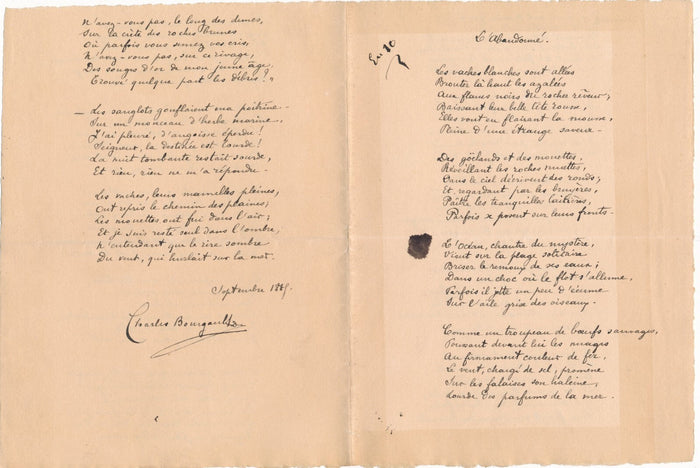 N'avez-vous pas, le long des dunes,
Sur la crête des roches brunes
Où parfois vous semez vos cris,
N'avez-vous pas, sur ce rivage,
Des songes d'or de mon jeune âge,
Trouvé quelque part les débris ? »
— Les sanglots gonflaient ma poitrine.
Sur un monceau d'herbe marine,
J'ai pleuré, d'angoisse éperdu !
Seigneur, la destinée est lourde !
La nuit tombante restait sourde,
Et rien, rien ne m'a répondu.
Les vaches, leurs mamelles pleines,
Ont repris le chemin des plaines ;
Les mouettes ont fui dans l'air ;
Et je suis resté seul dans l'ombre,
N'entendant que le rire sombre
Du vent, qui hurlait sur la mer.
Septembre 1885.
Charles Bourgault
En 10
L'Abandonné.
Les vaches blanches sont allées
Brouter là haut les azalées
Aux flancs noirs du rocher rêveur ;
Baissant leur belle tête rousse,
Elles vont en flairant la mousse
Pleine d'une étrange saveur.
Des goëlands et des mouettes,
Réveillant les roches muettes,
Dans le ciel décrivent des ronds ;
Et, regardant par les bruyères,
Paître les tranquilles laitières,
Parfois se posent sur leurs fronts.
L'Océan, chantre du mystère,
Vient sur la plage solitaire
Briser le remous de ses eaux ;
Dans un choc où le flot s'allume,
Parfois il jette un peu d'écume
Sur l'aile grise des oiseaux.
Comme un troupeau de bœufs sauvages,
Poussant devant lui les nuages
Au firmament couleur de fer,
Le vent, chargé de sel, promène
Sur les falaises son haleine,
Lourde des parfums de la mer.